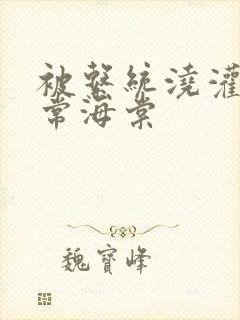 被系統澆灌
常海棠
魏寶峰